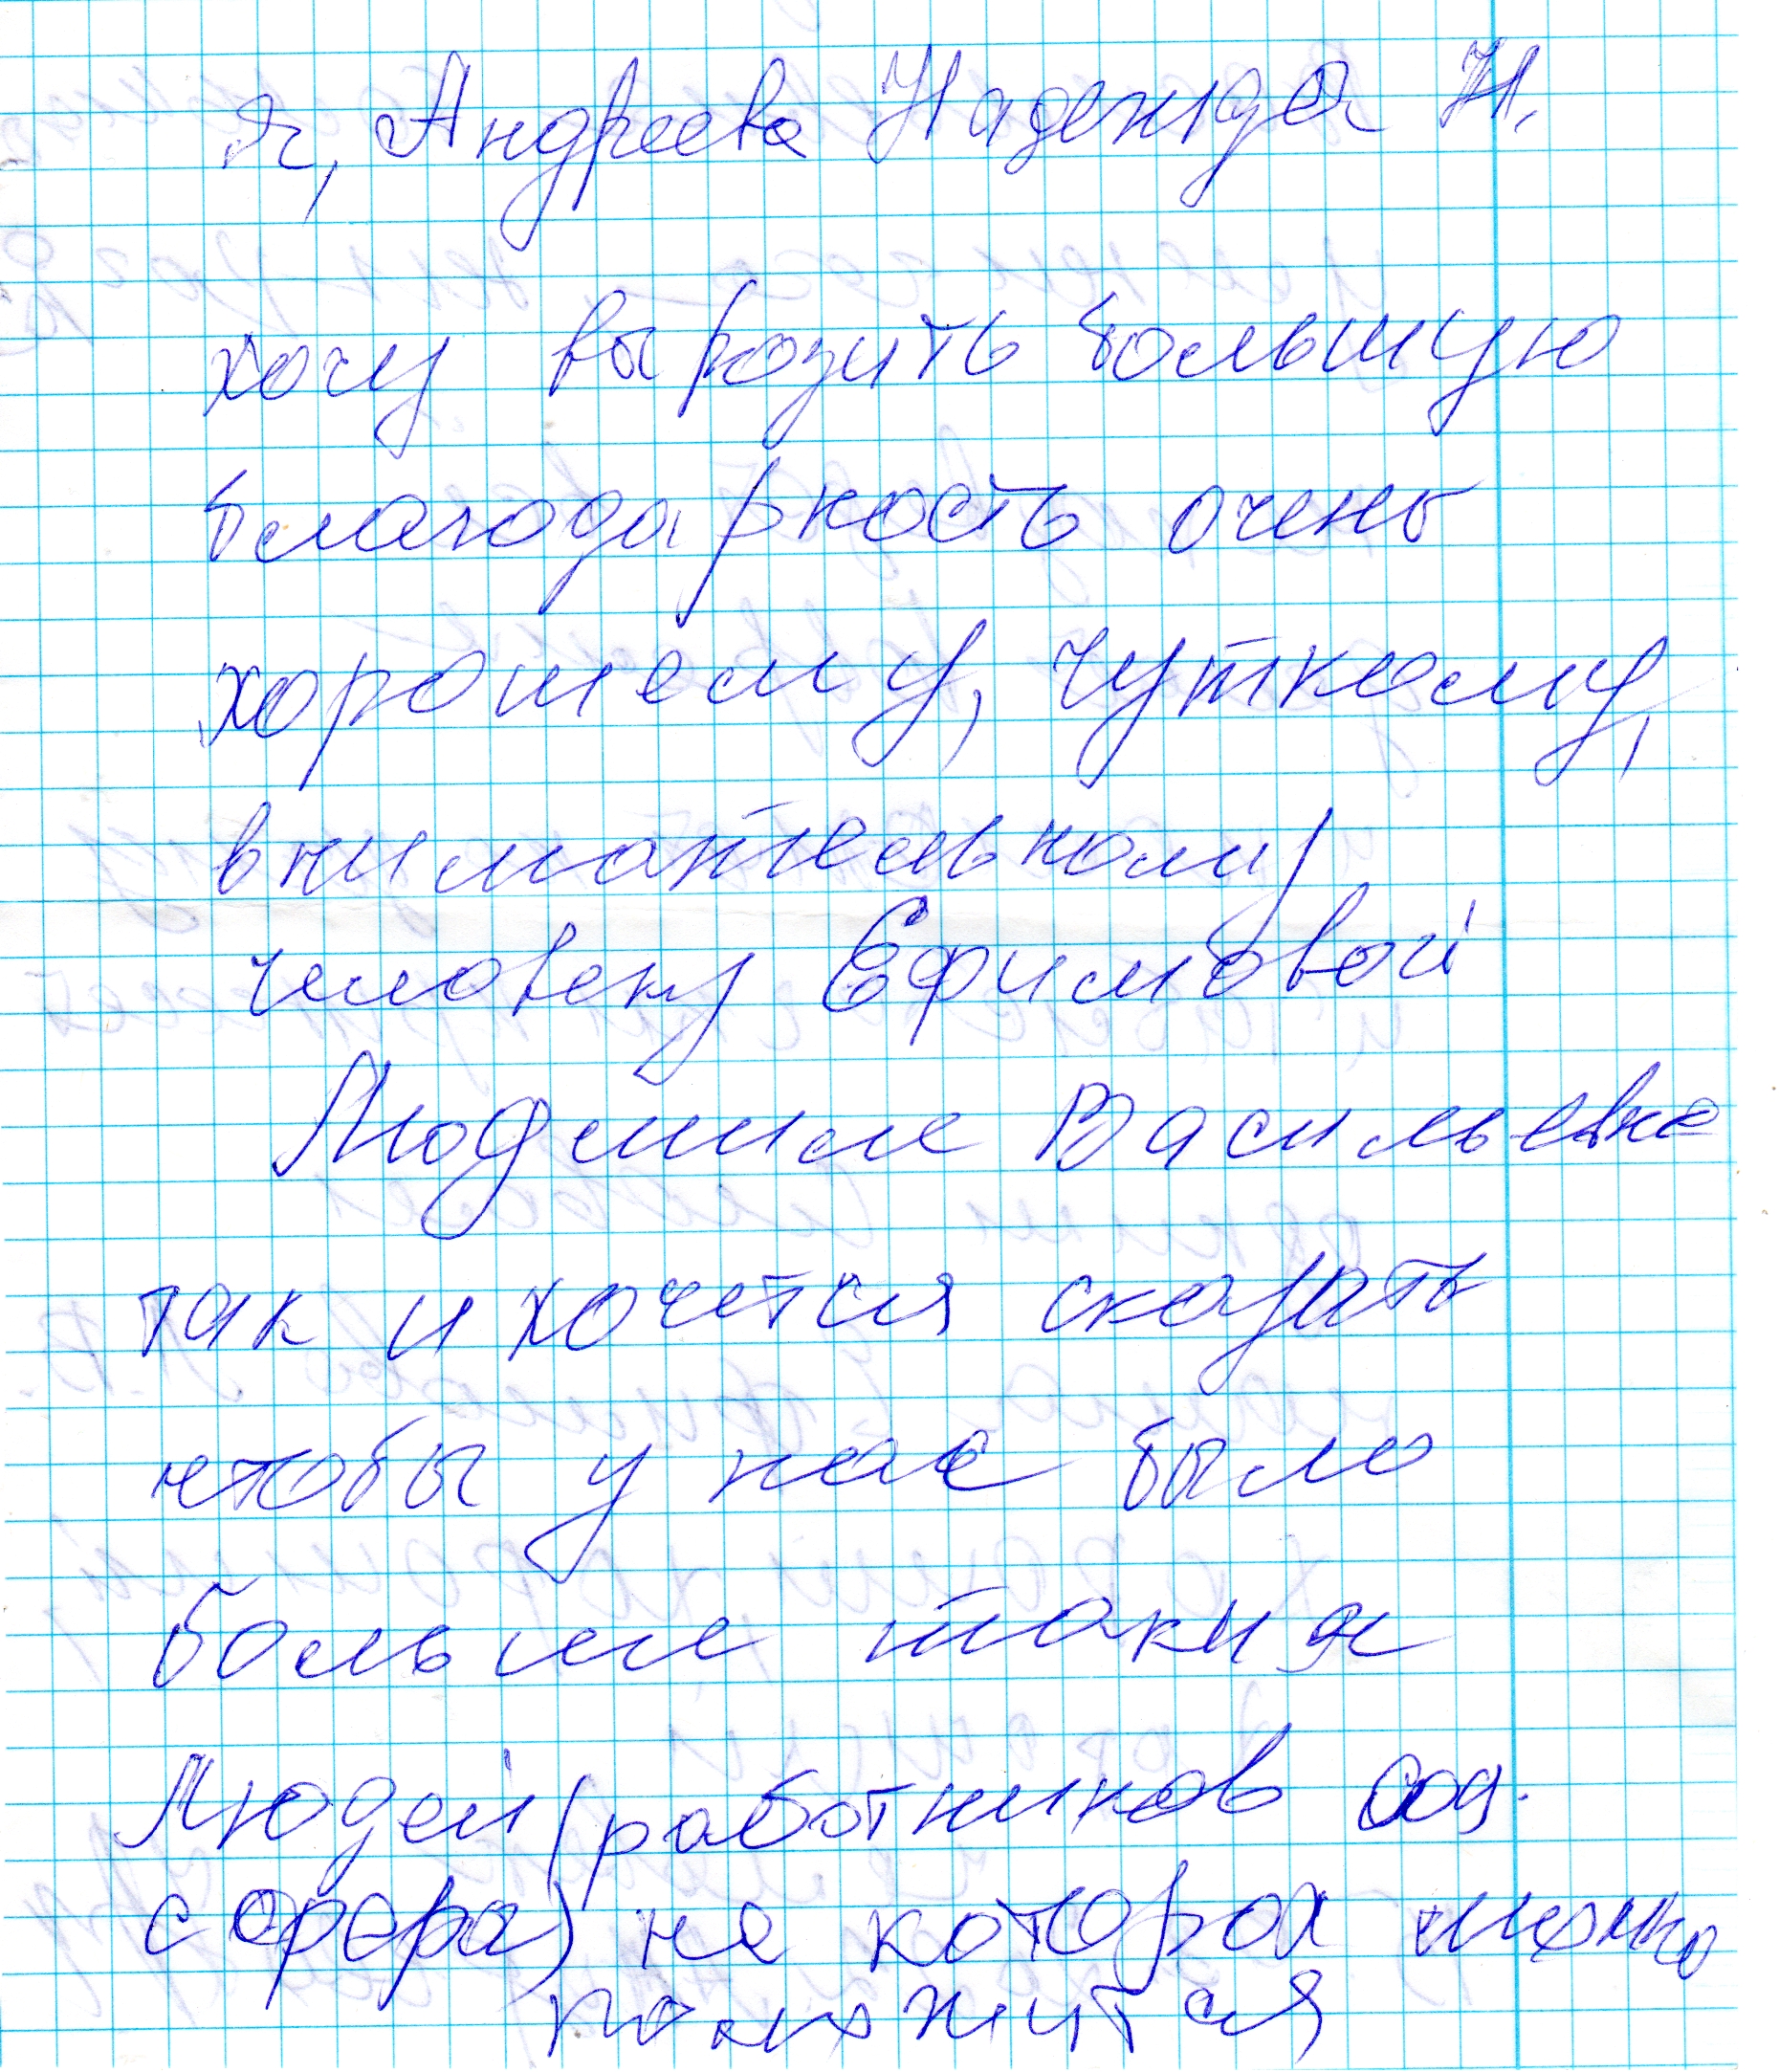 Я, Андреева Надежда Н.
хочу выразить большую
благодарность очень
хорошему, чуткому,
внимательному
человеку Ефимовой
Людмиле Васильевне
так и хочется сказать
чтобы у нас было
больше таких
Людей (работников соц.
сфера) на которых можно
положится